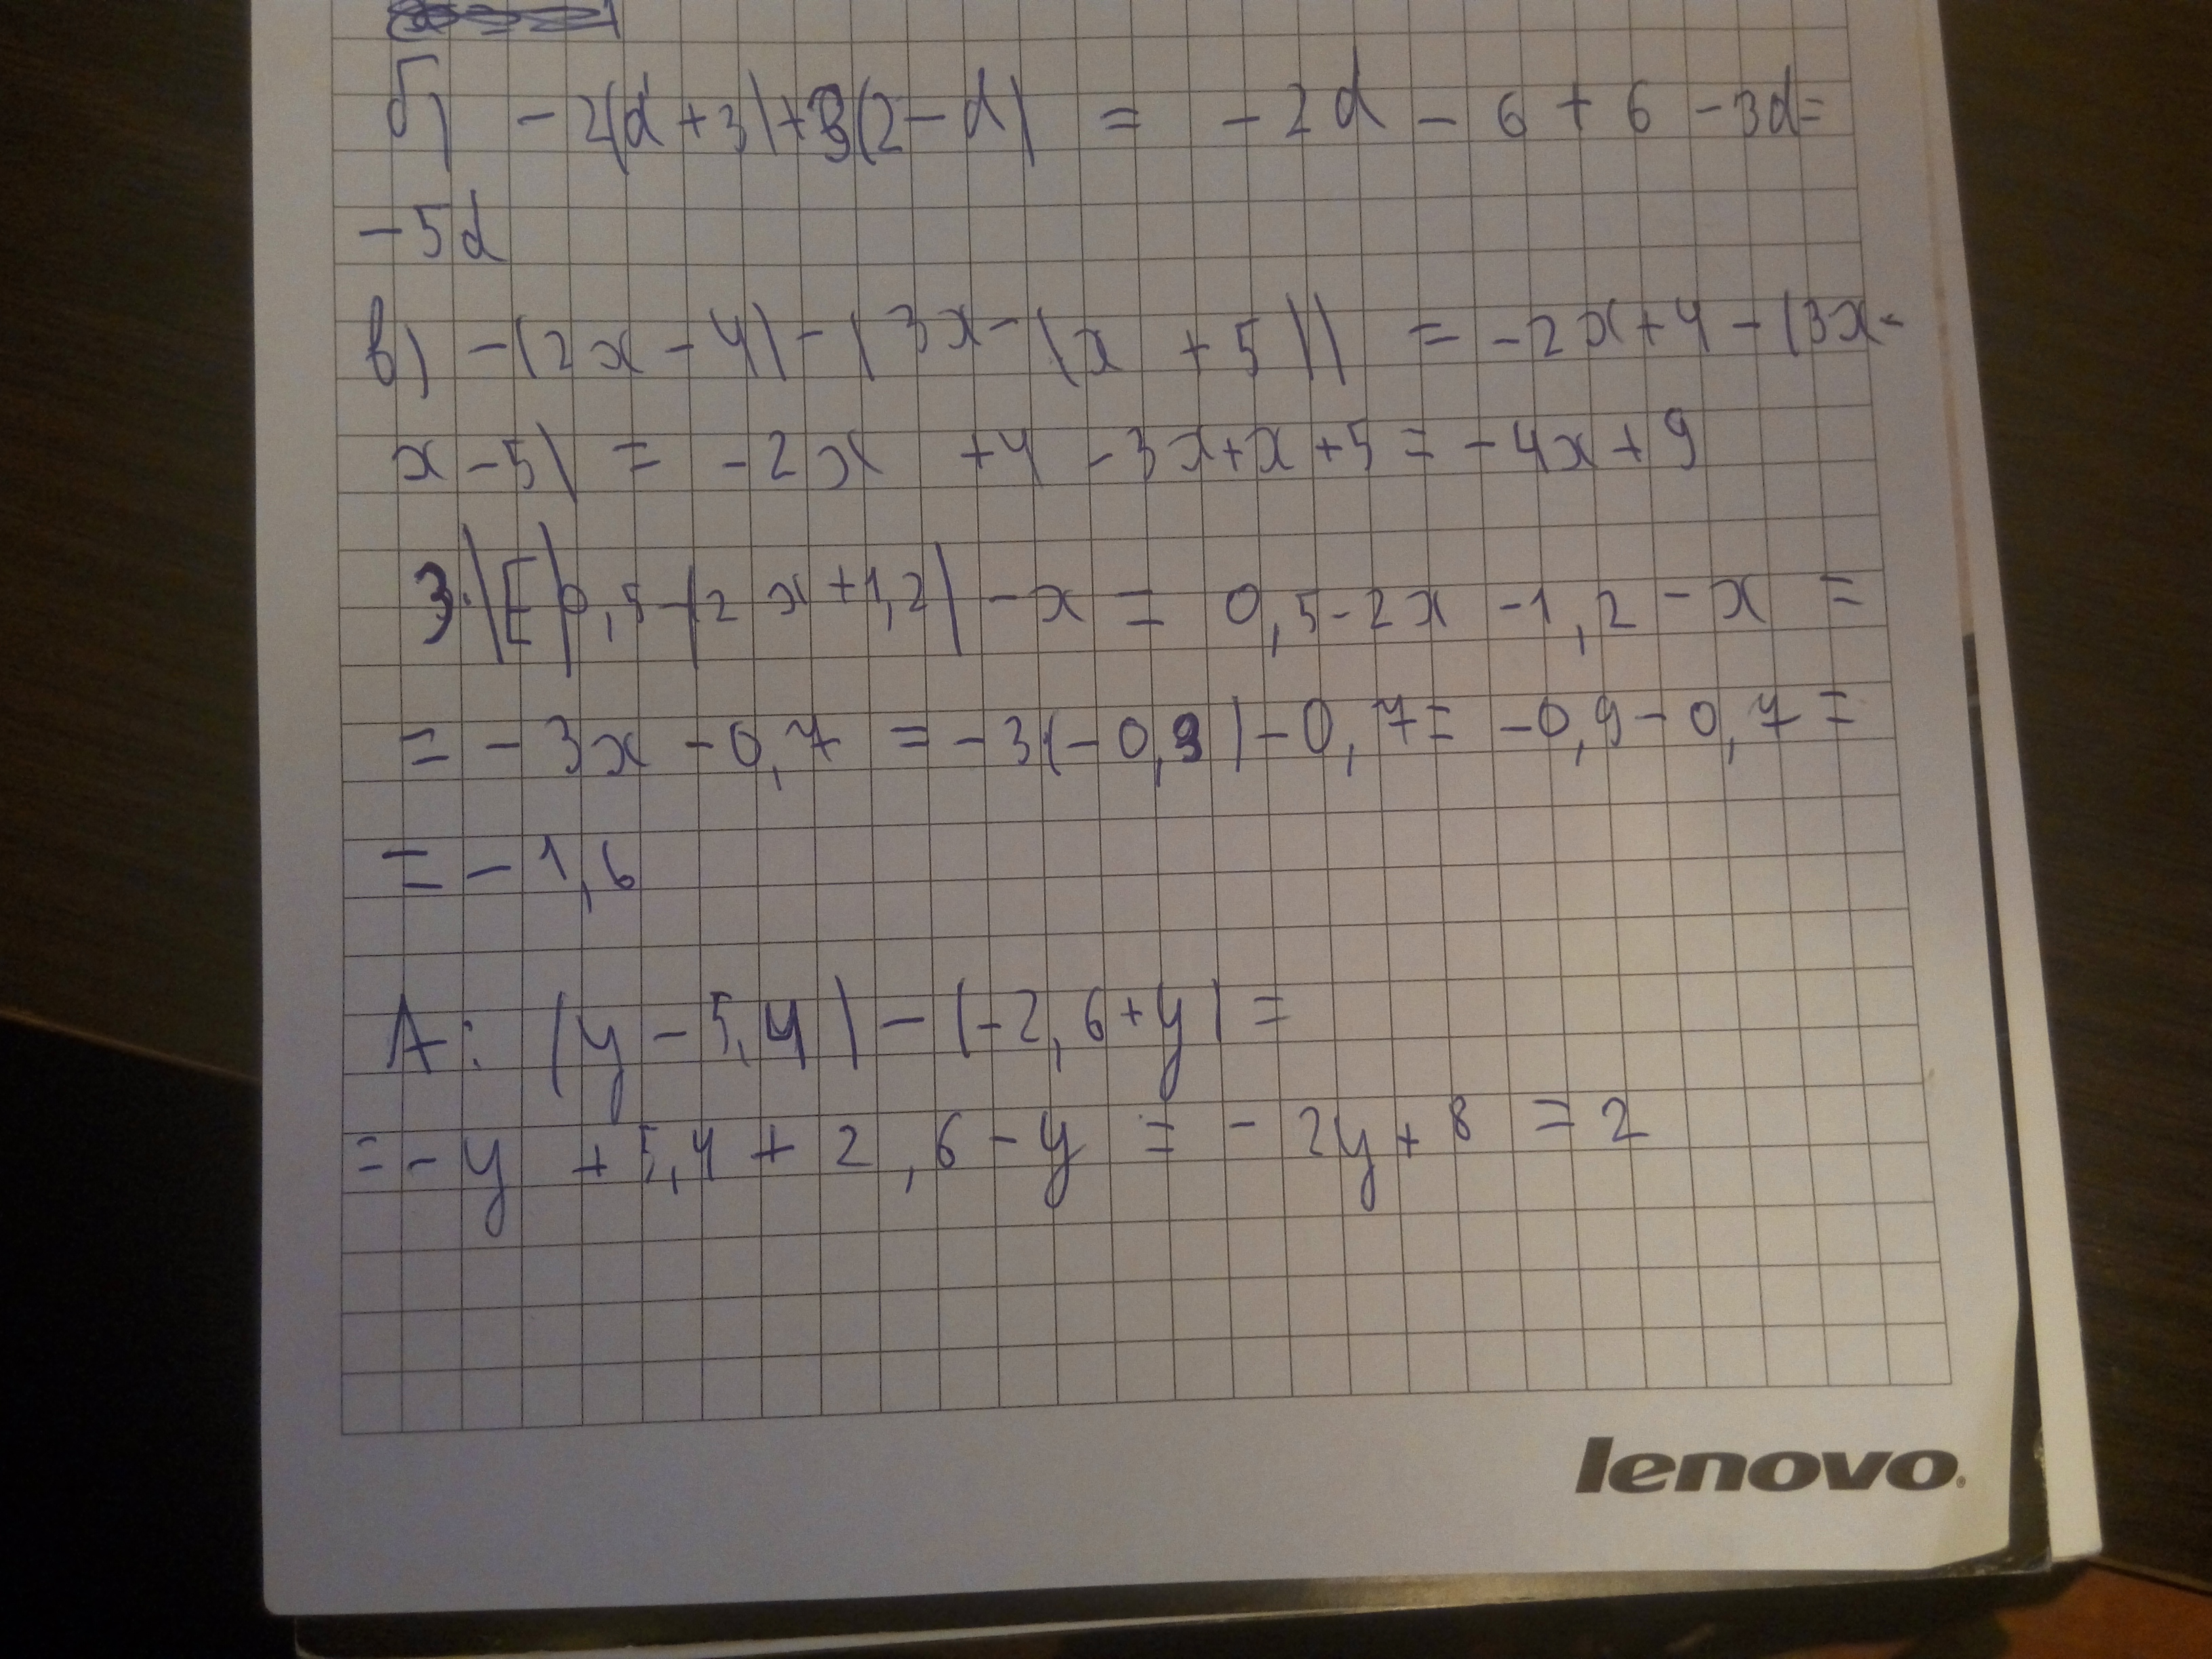 б) -2(d+3)+3(2-d) = -2d-6+6-3d=
-5d
в) -(2x-4)-(3x-(x+5)) = -2x+4-(3x-
x-5) = -2x+4-3x+x+5=-4x+9
3. (E)0,5-(2x+1,2)-x=0,5-2x-1,2-x=
=-3x-0,7=-3(-0,3)-0,7=-0,9-0,7=
=-1,6
A: (y-5,4)-(-2,6+y)=
=-y+5,4+2,6-y=-2y+8=2
lenovo